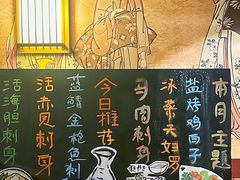 本月主题
盐烤鸡白子
冰菜天妇罗
马肉刺身
今日推荐
蓝鳍金枪鱼刺
活赤贝刺身
活海胆刺身